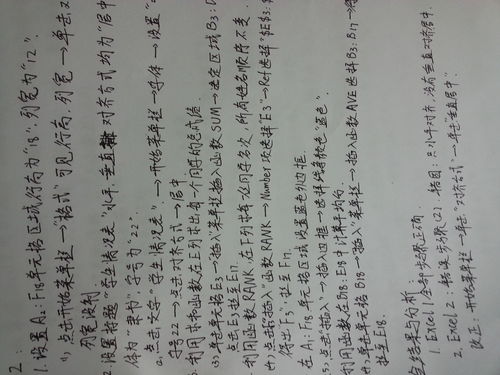 2:
1. 设置A2:F18单元格区域,行高为"18",列宽为"12".
a, 点击开始菜单栏→"格式"可见行高,列宽→单击又
列宽设利.
2 设置标题"学生情况表"水平、垂直 对齐方式均为"居中
体为"隶书",字号为"22".
a.点击文字"学生情况表"→开始菜单栏→字体→设置"
字号22→点击对齐方式→居中
利用求和函数在E列求出每一个同学的总成绩.
3, 单击单元格E3→插入菜单栏→插入函数SUM→选定区域B3:
点击E3,拉至E17.
利用函数RANK在F列求每位同学名次,所有姓名顺序不变.
4, 点击"插入"→插入函数RANK→Number项选择"E3"→Ref选择"$E$3:
得出"F3",拉至F17.
在A1:F18单元格区域设置蓝色外边框.
5,点击"插入"→插入边框→选择线条颜色"蓝色".
利用函数在B18:E18中计算平均分.
6,单击单元格B18→插入"菜单栏→插入函数AVE选择B3:B17→得
拉至E18.
结果与分析:
1. Excel1全部步骤正确
2, Excel 2: 错误步骤(2). 错因:只水平对齐,没有垂直对齐居中.
改正.开始菜单栏→单击"对齐方式"→单击"垂直居中".